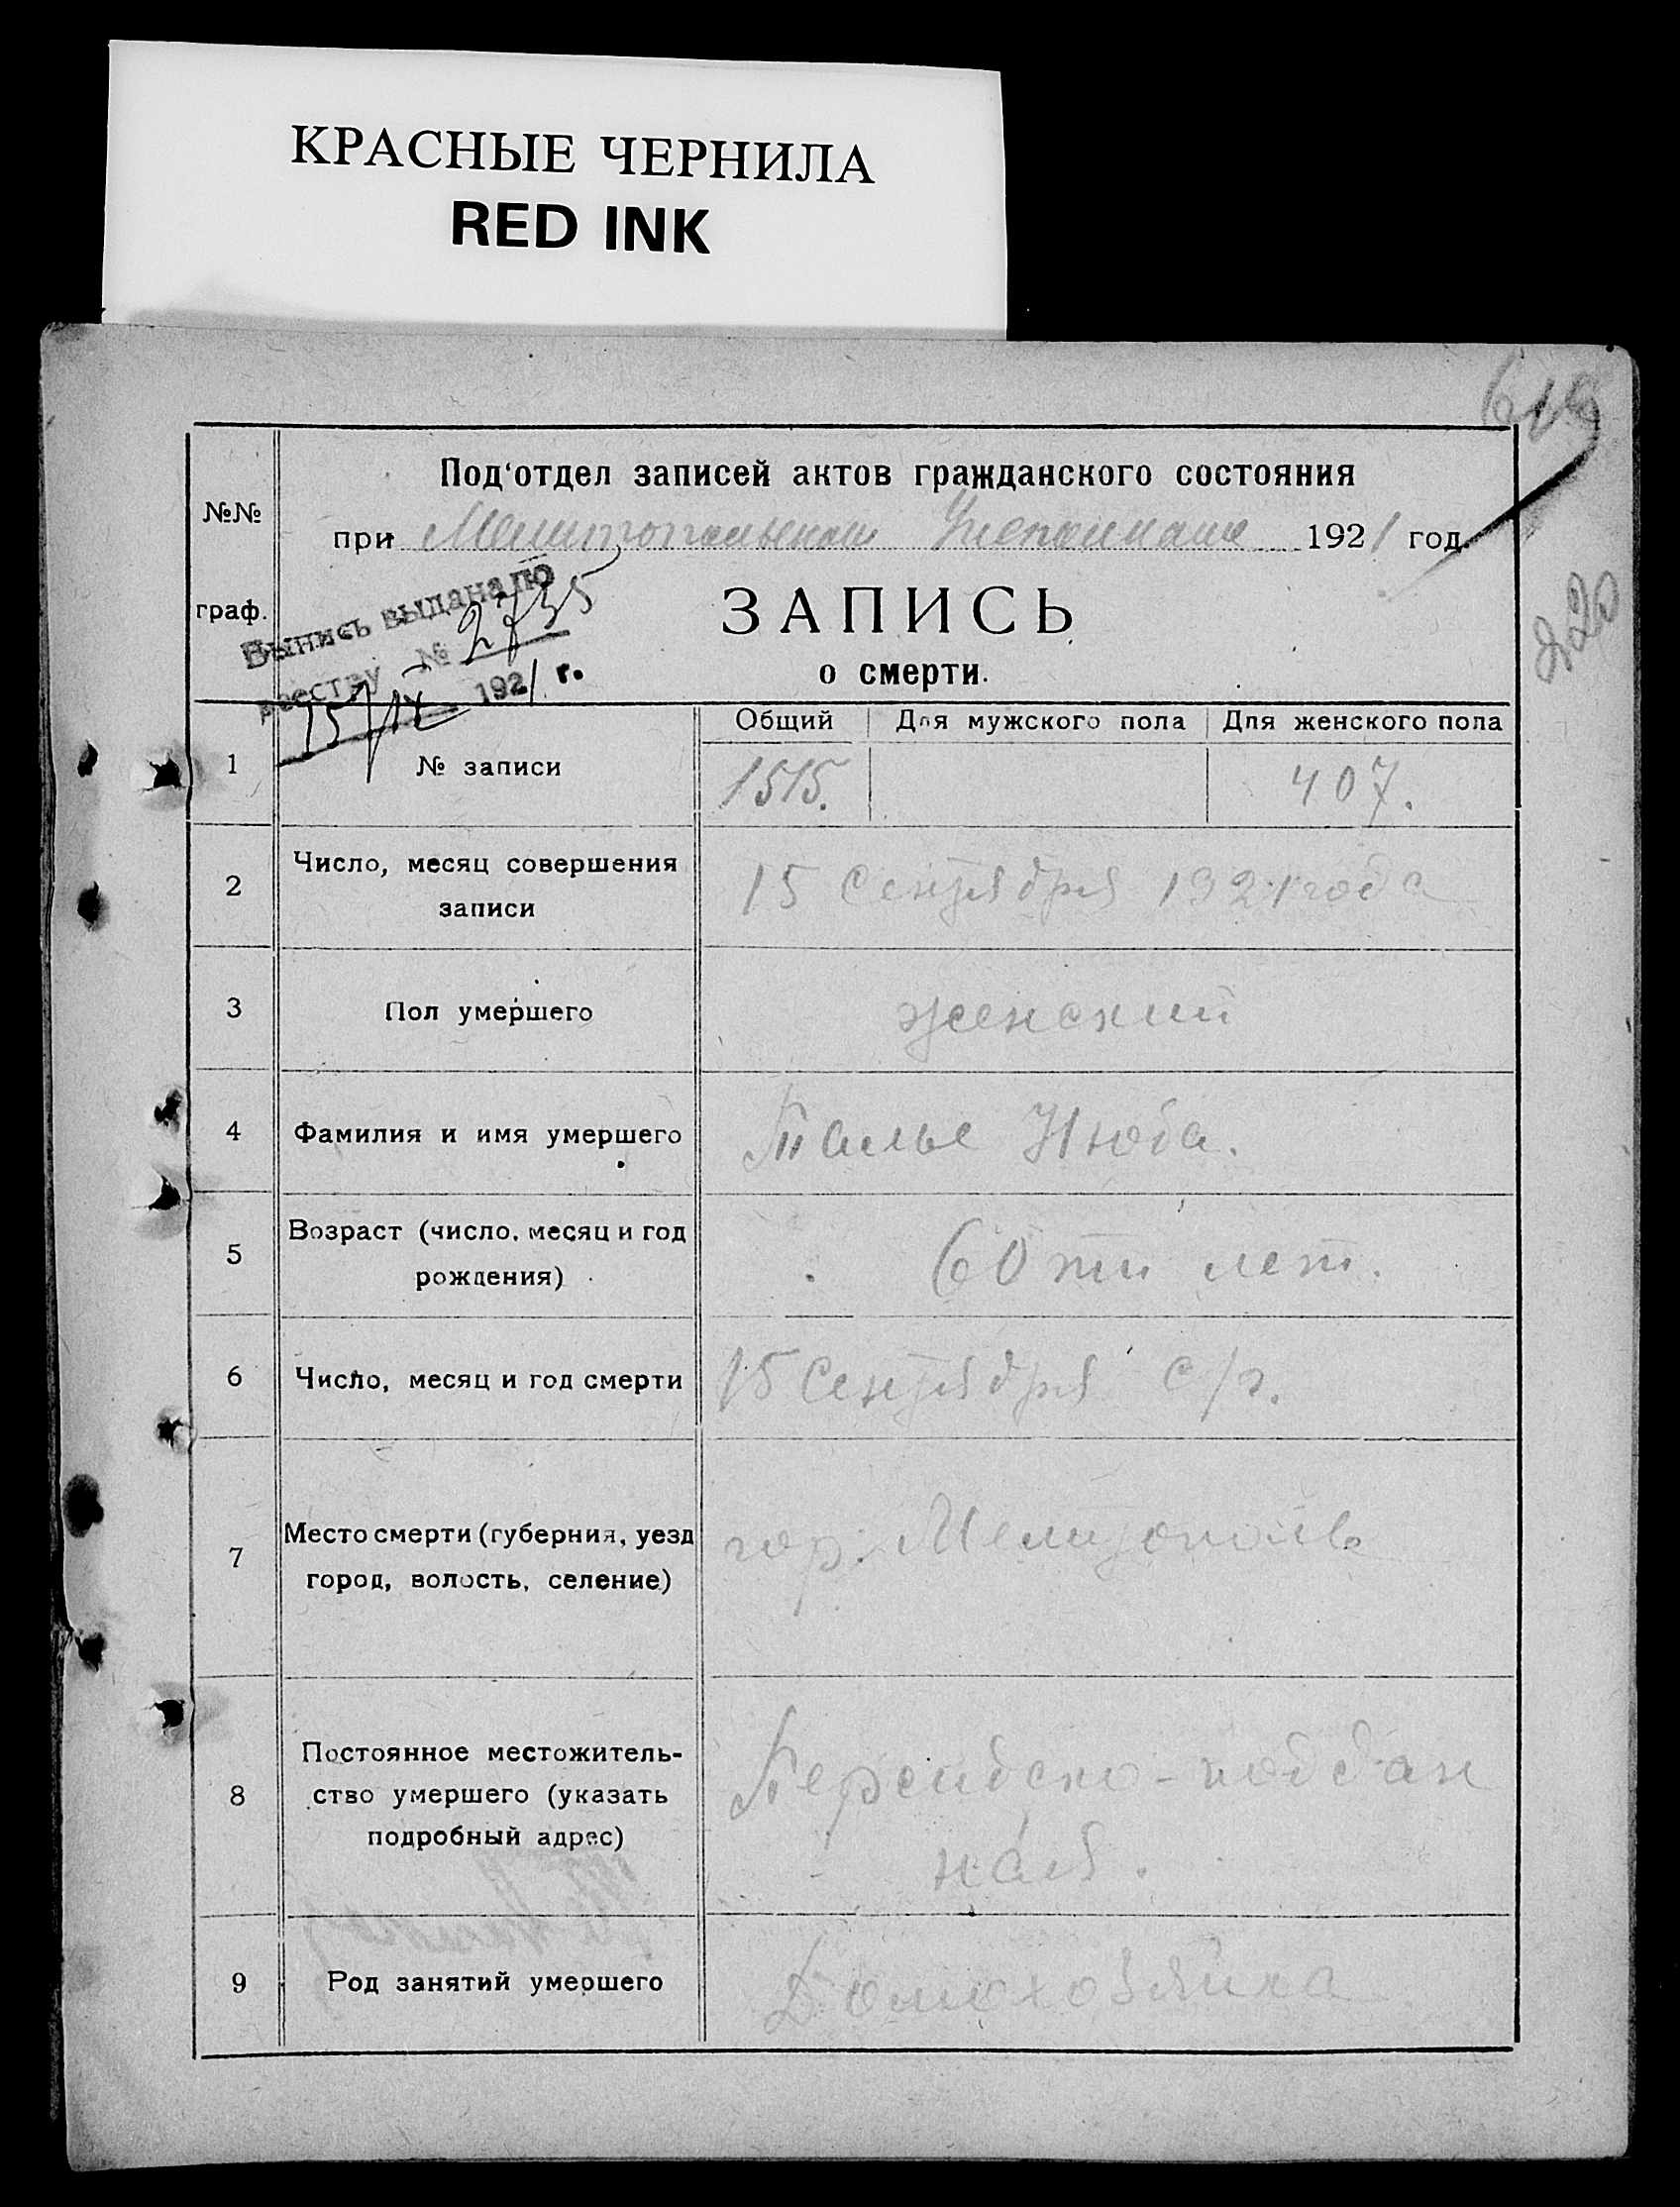 КРАСНЫЕ ЧЕРНИЛА
RED INK
Под'отдел записей актов гражданского состояния
при Мелитопольском 1921 год.
Выпись выдана по
реестру № 2735
15/IX 1921 г.
ЗАПИСЬ
о смерти.
№№ граф.
Общий Для мужского пола Для женского пола
1 № записи 1515. 407.
2 Число, месяц совершения записи 15 Сентября 1921 года
3 Пол умершего женский
4 Фамилия и имя умершего
5 Возраст (число, месяц и год рождения) 60 ти лет.
6 Число, месяц и год смерти 15 Сентября с/г.
7 Место смерти (губерния, уезд город, волость, селение) гор. Мелитополь
8 Постоянное местожитель-
ство умершего (указать
подробный адрес)
Персидско-поддан
ная.
9 Род занятий умершего Домохозяйка
220